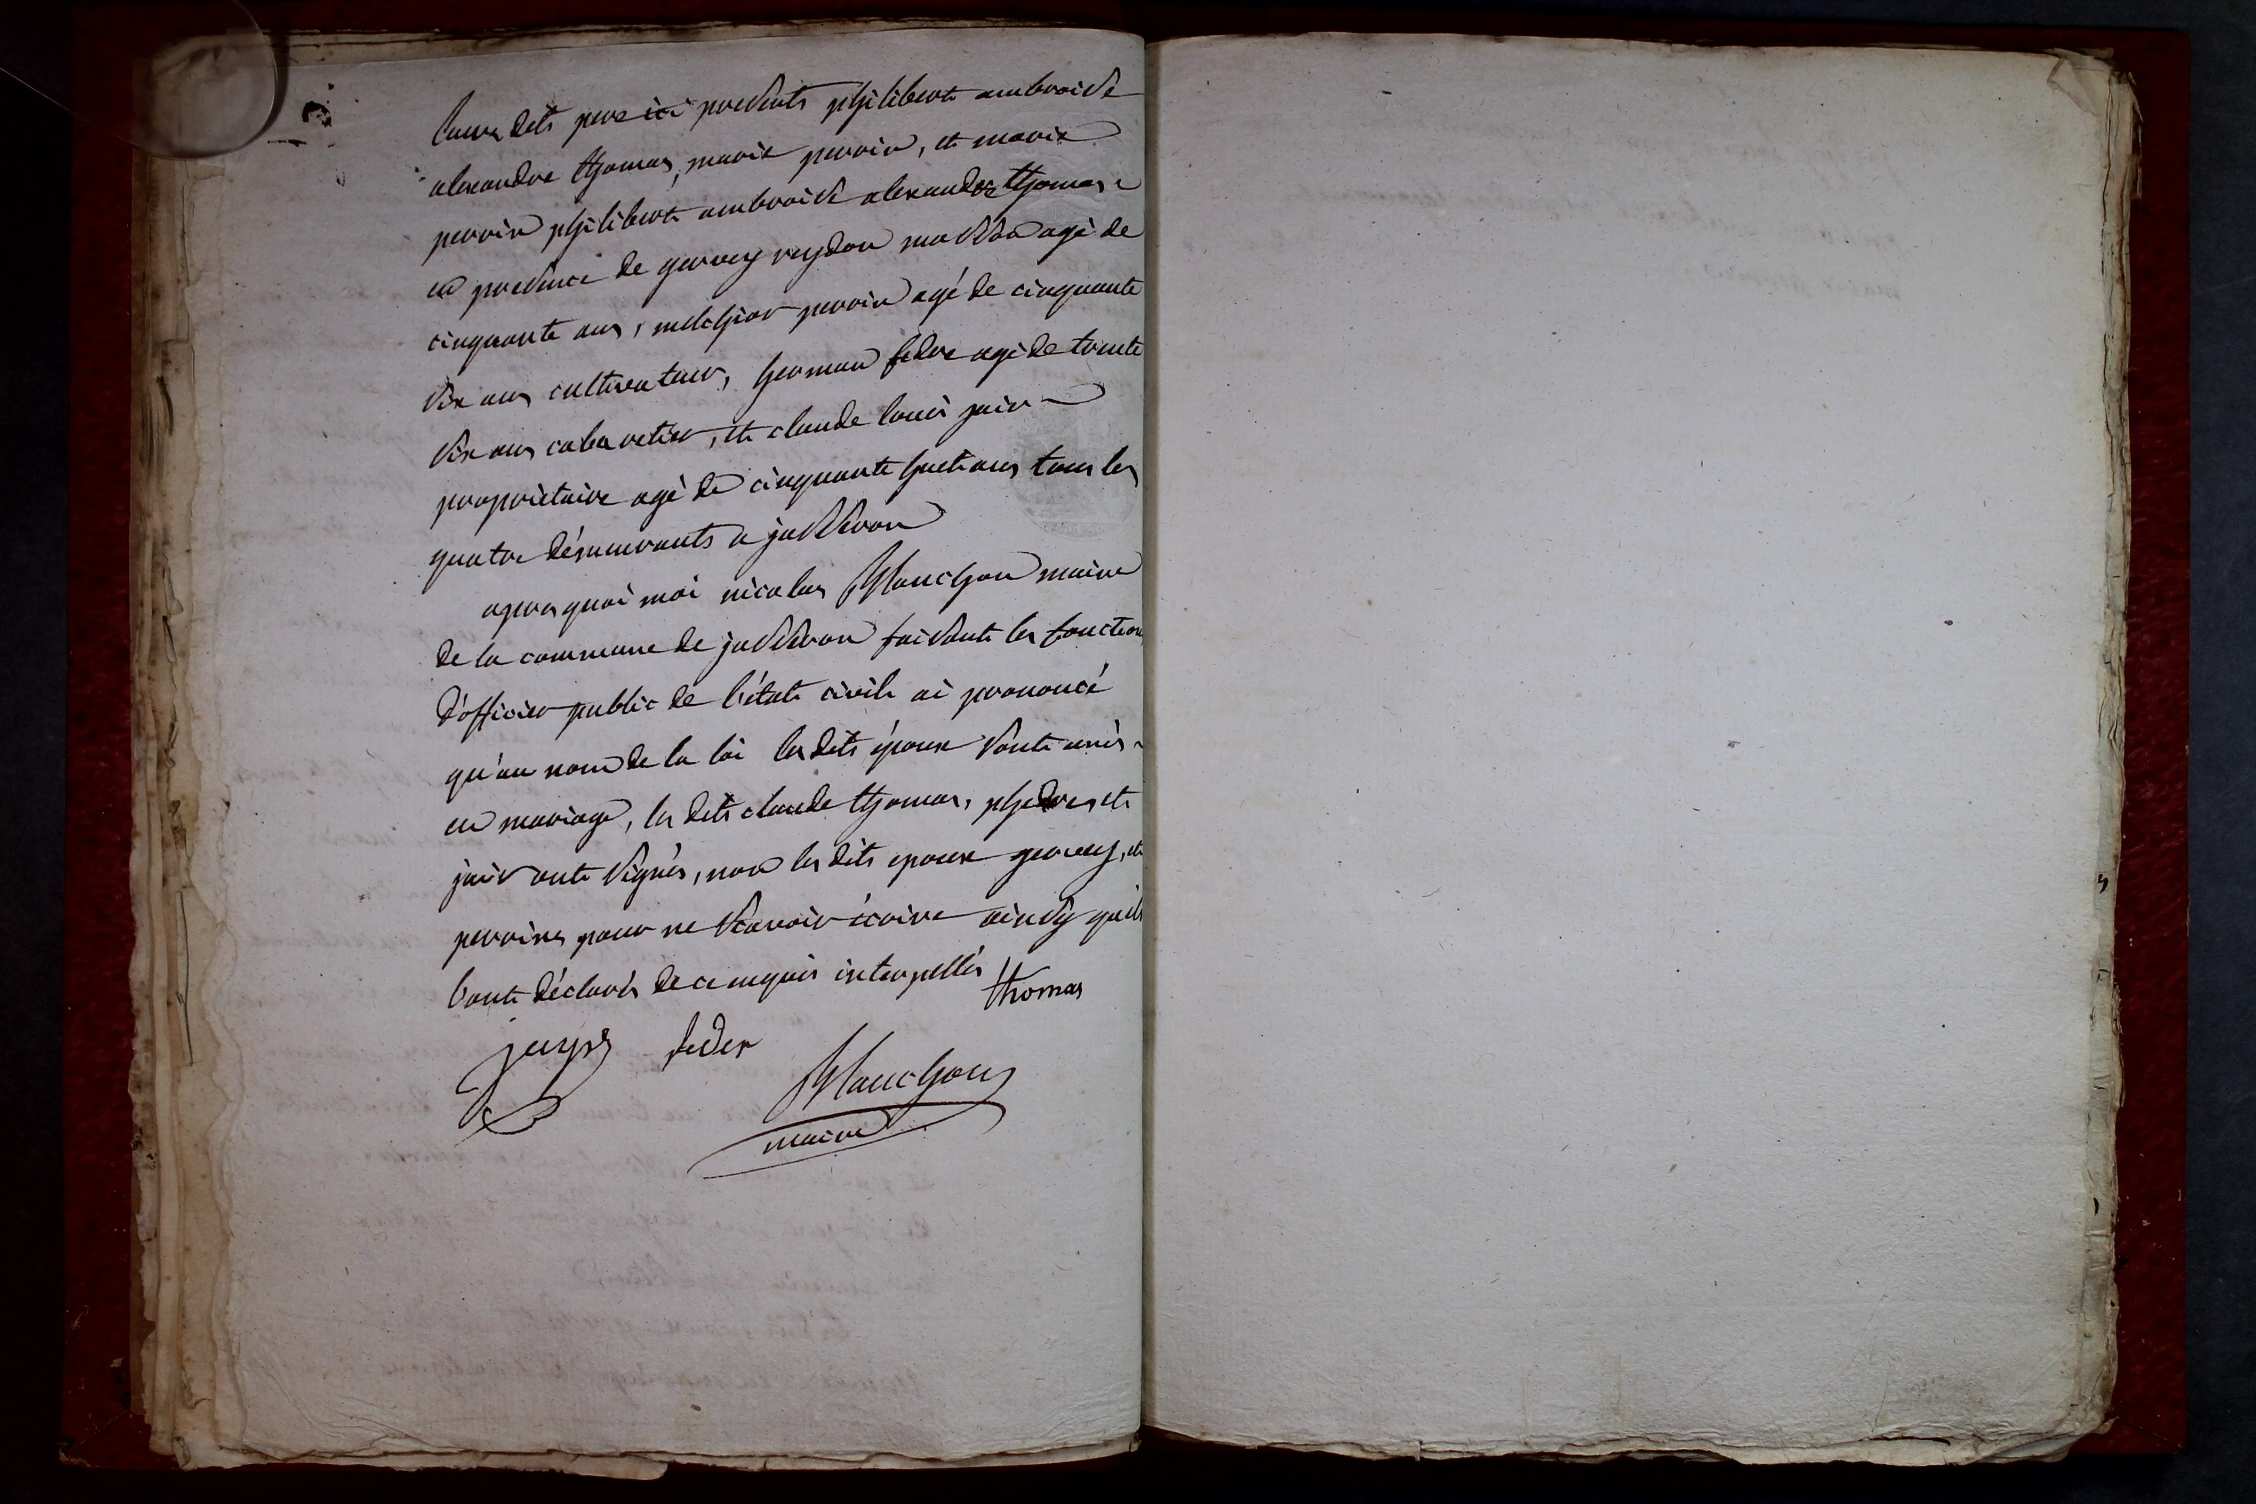 leurs dits pere ici presents philibert ambroise
alexandre thomas, marie perrin, et marie
perrin philibert ambroise alexandre thomas
en presence de gervey reydon masson agé de
cinquante ans, melchior perrin agé de cinquante
six ans cultivateur, herman fedre agé de trente
six ans cabaretier, et claude louis jair
proprietaire agé de cinquante huit ans tous les
quatre démeurants a jasseron
apres quoi moi nicolas Blanchon maire
de la commune de jasseron faisant les fonctions
d'officier public de l'état civil ai prononcé
qu'au nom de la loi les dits époux sont unis
en mariage, les dits claude thomas, phedres et
jair ont signés, non les dits epoux gervey, et
perrins pour ne scavoir écrire ainsy quils
l'ont déclarés de ce enquis interpellés
thomas
feder
Blanchon
maire